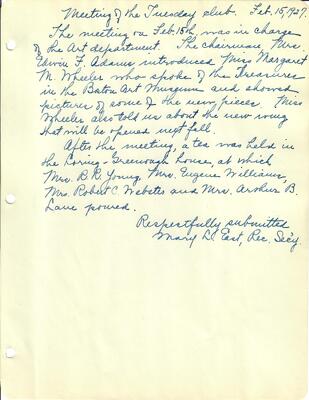 Meeting of the Tuesday Club. Feb. 15, 1927.
The meeting on Feb. 15th, was in charge
of the Art department. The chairman, Mrs.
Edwin F. Adams introduced Miss Margaret
M. Wheeler who spoke of the Treasures
in the Boston Art Museum and showed
pictures of some of the new pieces. Miss
Wheeler also told us about the new wing
that will be opened next fall.
After the meeting, a tea was held in
the Loring-Greenough House, at which
Mrs. B. R. Young, Mrs. Eugene Williams,
Mrs. Robert C. Webster and Mrs. Arthur B.
Lane poured.
Respectfully submitted
Mary D. East, Rec. Sec'y.